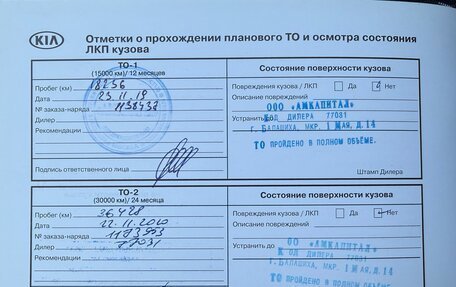 KIA
Отметки о прохождении планового ТО и осмотра состояния
ЛКП кузова
ТО-1
(15000 км)/ 12 месяцев
Состояние поверхности кузова
Пробег (км) 18236
Повреждения кузова / ЛКП Да Нет
Дата 23.11.19
Описание повреждений
№ заказа-наряда 1138437
ООО «АМКАПИТАЛ»
Дилер
Устранить
КОД ДИЛЕРА 77031
Рекомендации
г. БАЛАШИХА, МКР. 1 МАЯ, Д.14
ТО ПРОЙДЕНО В ПОЛНОМ ОБЪЕМЕ.
Подпись ответственного лица
Штамп Дилера
ТО-2
(30000 км)/ 24 месяца
Состояние поверхности кузова
Пробег (км) 36428
Повреждения кузова / ЛКП Да Нет
Дата 22.11.2020
Описание повреждений
№ заказа-наряда 1193953
Дилер 77031
Устранить до
ОО «АМКАПИТАЛ»
КОД ДИЛЕРА 77031
Рекомендации
г. БАЛАШИХА, МКР. 1 МАЯ, Д.14
ТО ПРОЙДЕНО В ПОЛНОМ ОБЪЕМЕ.